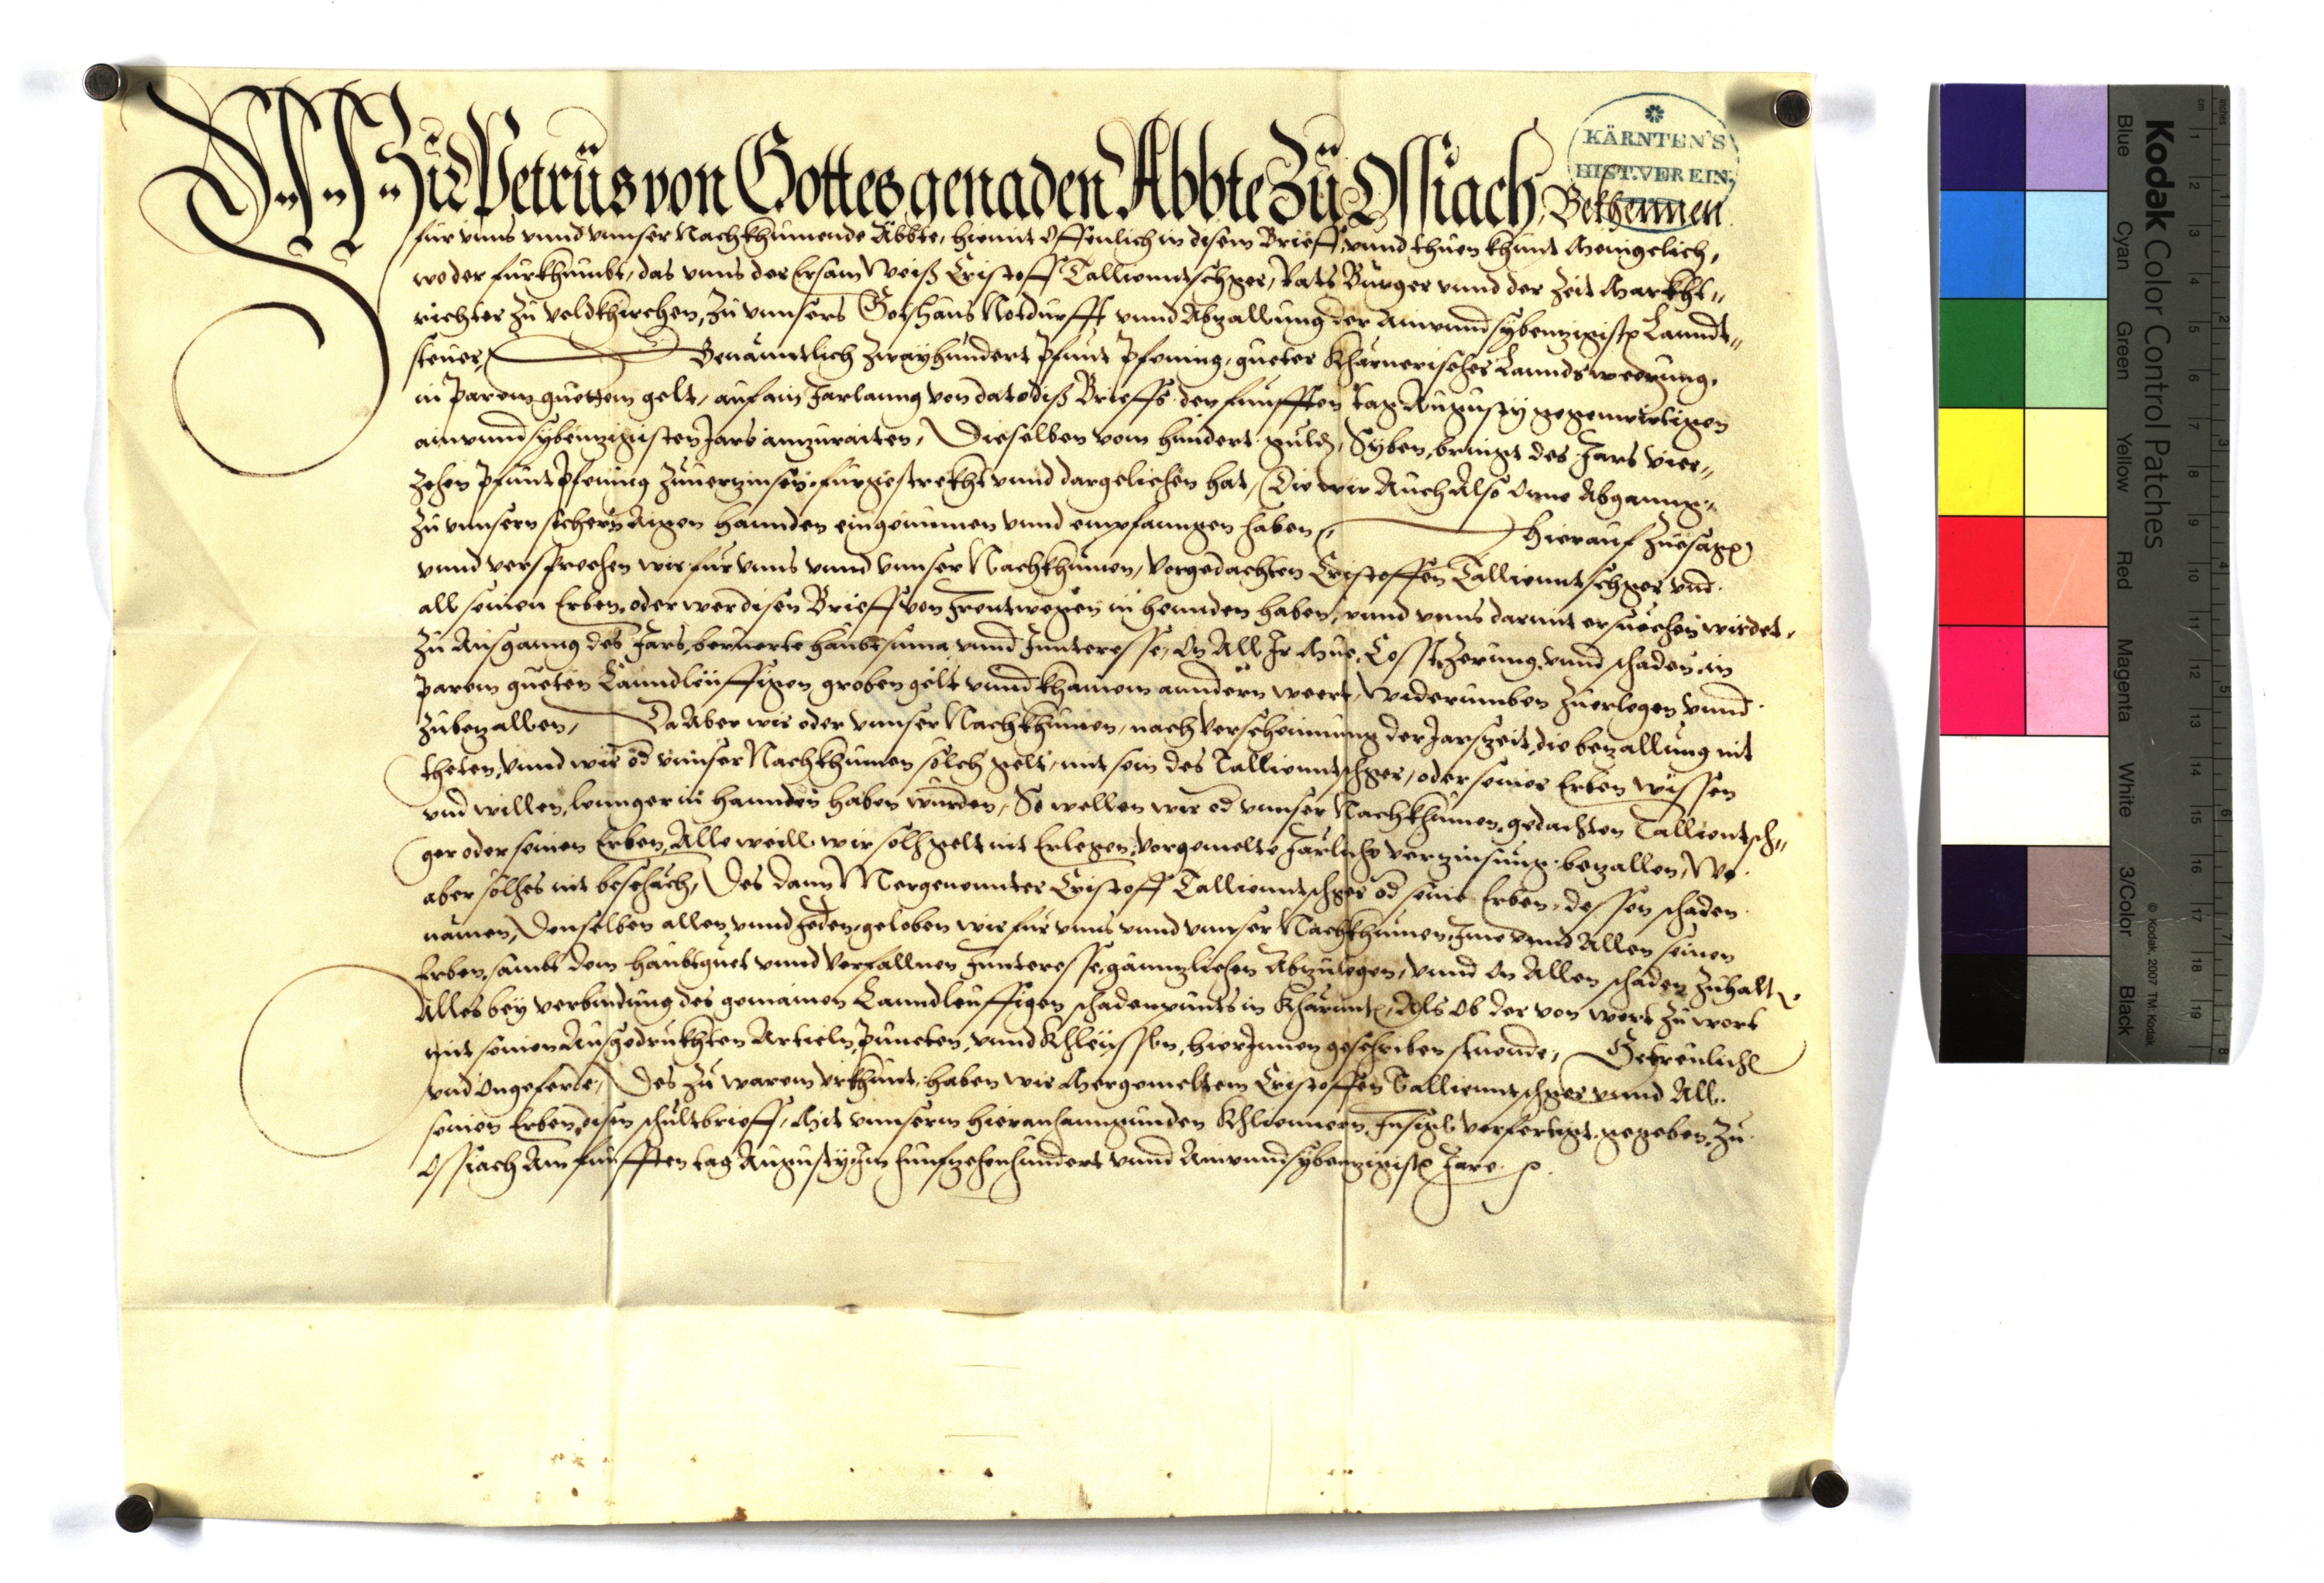 Wir Petrus von Gottes genaden Abbte Zu Ossiach Bekhennen
für vnns vnnd vnnser Nachkhumende Äbbte, hiemit Offenlich in disem Brieff, vnnd thuen khunt Menigelich,
wo der fürkhumbt, das vnns der Ersam Weiß Cristoff Tallienntschger, Rats Burger vnnd der Zeit Markht„
richter Zu Veldkhirchen, Zu vnnsers Gotshaus Notdurfft vnnd Abzallung der Ainvnndsybenzigist Lanndt„
steuer, Benänntlich Zwayhundert Pfunt Pfening, gueter Khärnerischer Lanndswerung,
in Parem guettem gelt, auf ain Jarlanng von dato diß Brieffs den funfften tag Augusty gegenwirtigen
ainvnndsybenzigisten Jars anzuraiten, Dieselben vom hundert guld, Syben, bringt des Jars Vier„
Zehen Pfunt Pfening Zuuerzinsen, fürgestrekht vnnd dargelichen hat, Die wir Auch Also One Abganng„
Zu vnnsern sichern Aigen hannden eingenumen vnnd emphanngen haben, Hierauf Zuesagn
vnnd versprechen wir für vnns vnnd vnnser Nachkhumen, Vorgedachten Cristoffen Tallienntschger vnd
all seinen Erben, oder wer disen Brieff von Irentwegen in hennden haben, vnnd vnns darmit ersuechen wirdet,
Zu Ausganng des Jars, beruerte haubtsuma vnnd Innteresse, On All Ir Mue, Cosst, Zerung, vnnd schaden, in
Parem gueten Lanndleuffigen groben gelt vnnd khainem anndern weert, widerumben Zuerlegen vnnd
Zubezallen, Da Aber wir oder vnnser Nachkhumen, nach Verscheinung der Jarszeit, die bezallung nit
theten, vnnd wir od vnnser Nachkhumen solch gelt, mit sein des Tallienntschger, oder seiner Erben wissen
vnd willen, lennger in hannden haben wurden, So wellen wir od vnnser Nachkhumen, gedachten Tallientsch„
ger oder seinen Erben, Alle weill wir solh gelt nit Erlegen, Vorgemelte Jarliche verzinsung bezallen, Wo
aber solhes nit beschäch, Des dann Mergenennter Cristoff Tallienntschger od seine Erben, dessen schaden
namen, Denselben allen vnnd Jeden, geloben wir für vnns vnnd vnnser Nachkhumen, Ime vnnd Allen seinen
Erben, sambt dem haubtguet vnnd Verfallnen Innteresse, gännzlichen Abzulegen, vnnd On Allen schaden Zuhalt
Alles bey verbindung des gemainen Lanndleuffigen schadenpunts in Khärnnt, Als Ob der von wort Zu wort
mit seinen Ausgedrukhten Articln, Puncten, vnnd Khleusln, hierInnen geschriben stuende, Getreulich
vnd Ongeferde, Des Zu warem Vrkhunt, haben wir Mergemeltem Cristoffen Tallienntschger vnnd All
seinen Erben, disen schultbrieff, Mit vnnserm hieranhanngunden Khlienneren Insigl verfertigt gegeben, Zu
Ossiach Am funfften tag Augusty, Im funfzehenhundert vnnd Ainvnndsybenzigist Jare.
KÄRNTEN'S
HIST. VEREIN.
Kodak Color Control Patches
Blue Cyan Green Yellow Red Magenta White 3/Color Black
© Kodak, 2007 TM: Kodak
cm 1 2 3 4 5 6 7 8 9 10 11 12 13 14 15 16 17 18 19
inches 1 2 3 4 5 6 7 8